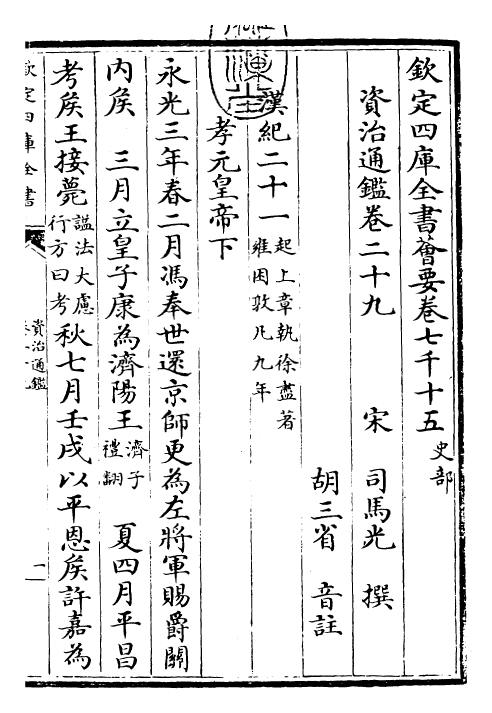 欽定四庫全書薈要卷七千十五 史部
資治通鑑卷二十九
宋 司馬光 撰
胡三省 音註
漢紀二十一 起上章執徐盡著雍困敦凡九年
孝元皇帝下
永光三年春二月馮奉世還京師更為左將軍賜爵關
内矦 三月立皇子康為濟陽王 濟子禮翻 夏四月平昌
考矦王接薨 謚法大慮行方曰考 秋七月壬戌以平恩矦許嘉為
欽定四庫全書
資治通鑑